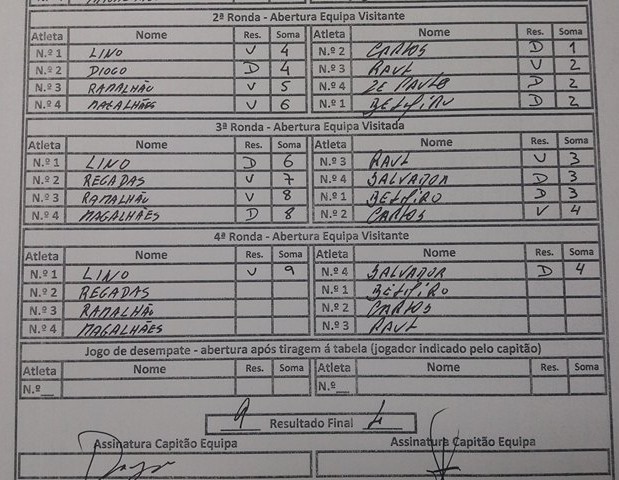 2ª Ronda - Abertura Equipa Visitante
Atleta Nome Res. Soma Atleta Nome Res. Soma
N.º 1 LINO V 4 N.º 2 CARLOS D 1
N.º 2 DIOGO D 4 N.º 3 RAUL V 2
N.º 3 RAMALHÃO V 5 N.º 4 ZE PAULO D 2
N.º 4 MAGALHÃES V 6 N.º 1 D 2
3ª Ronda - Abertura Equipa Visitada
Atleta Nome Res. Soma Atleta Nome Res. Soma
N.º 1 LINO D 6 N.º 3 RAUL V 3
N.º 2 REGADAS V 7 N.º 4 SALVADOR D 3
N.º 3 RAMALHÃO V 8 N.º 1 D 3
N.º 4 MAGALHÃES D 8 N.º 2 CARLOS V 4
4ª Ronda - Abertura Equipa Visitante
Atleta Nome Res. Soma Atleta Nome Res. Soma
N.º 1 LINO V 9 N.º 4 SALVADOR D 4
N.º 2 REGADAS N.º 1
N.º 3 RAMALHÃO N.º 2 CARLOS
N.º 4 MAGALHÃES N.º 3 RAUL
Jogo de desempate - abertura após tiragem á tabela (jogador indicado pelo capitão)
Atleta Nome Res. Soma Atleta Nome Res. Soma
N.º__ N.º__
9 Resultado Final 4
Assinatura Capitão Equipa Assinatura Capitão Equipa